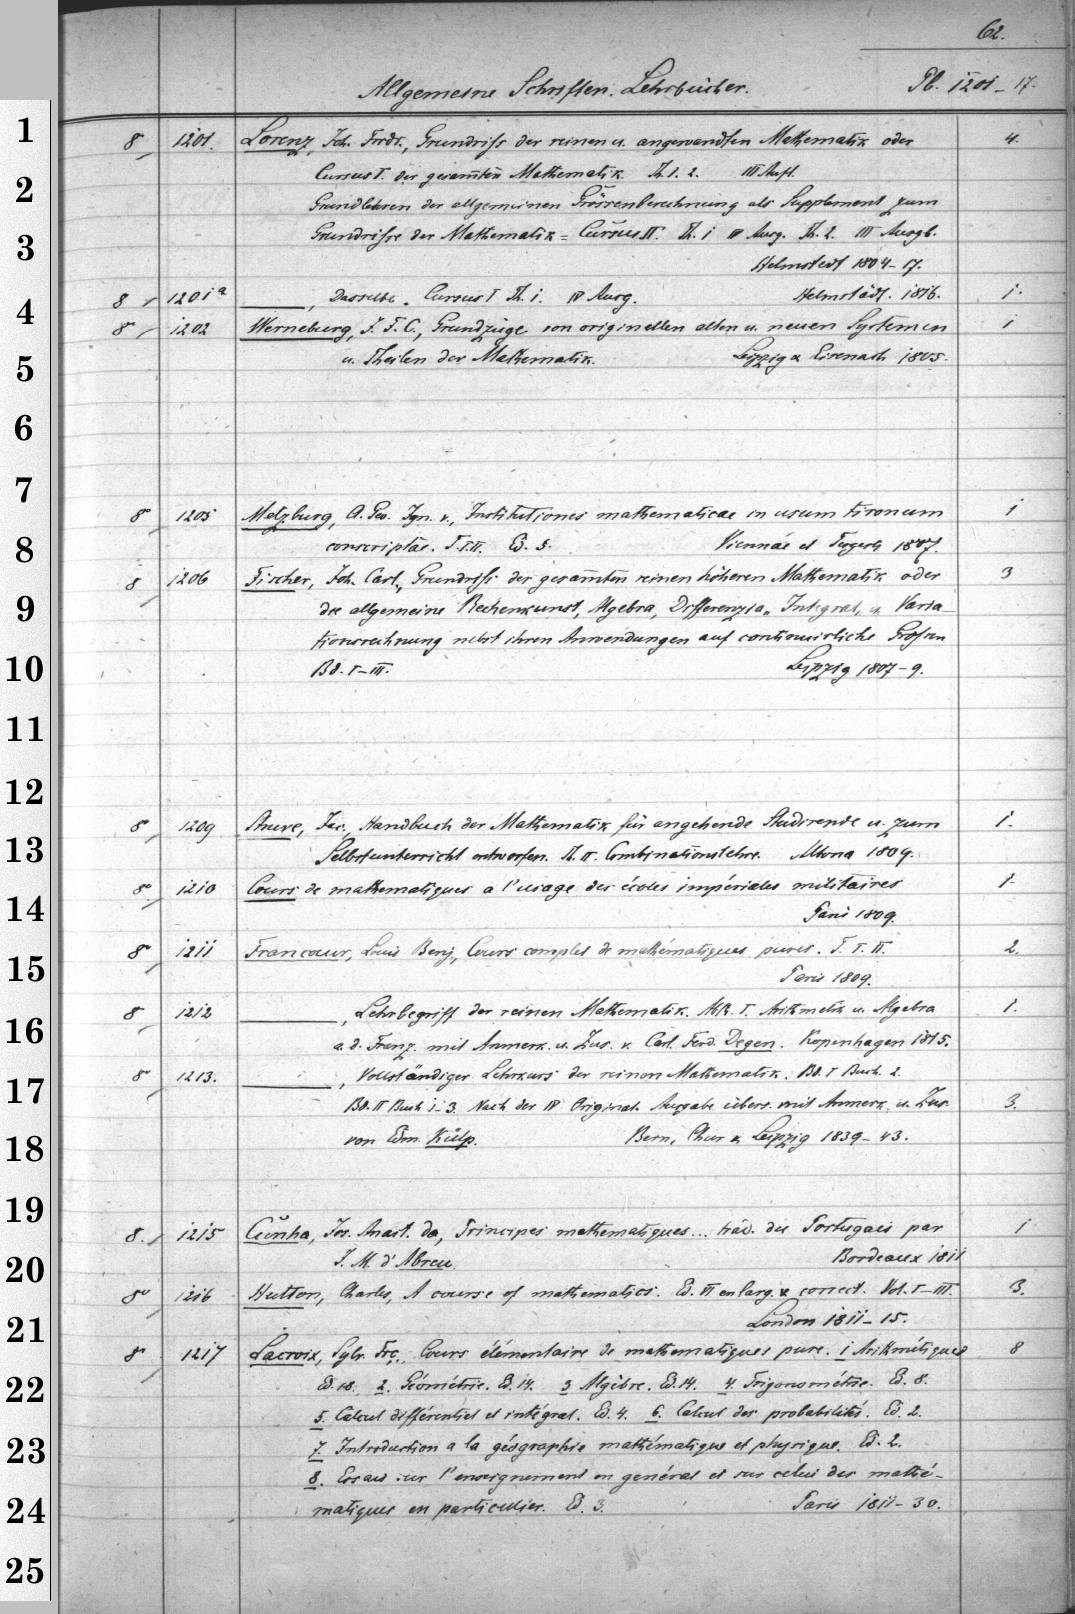 62.
Allgemeine Schriften. Lehrbücher. Pb. 1201-17.
8 1201. Lorenz, Joh. Frdr., Grundriss der reinen u. angewandten Mathematik oder 4.
Cursus I. der gesam̄ten Mathematik. Th. 1. 2. III Aufl.
Grundlehren der allgemeinen Grössenberechnung als Supplement zum
Grundrisse der Mathematik = Cursus II. Th. 1 IV Ausg. Th. 2. III Ausgb.
Helmstedt 1804-17.
8 1201a ———, Dasselbe. Cursus I Th. 1. IV Ausg. Helmstädt. 1816. 1.
8 1202 Werneburg, J. F. C., Grundzüge von originellen alten u. neuen Systemen 1
u. Theilen der Mathematik. Leipzig & Eisenach 1805.
8 1205 Metzburg, G. Ign. v., Institutiones mathematicae in usum tironum 1
conscriptae. T. I. II. Ed. 5. Viennae et Tergesti 1807.
8 1206 Fischer, Joh. Carl, Grundriss der gesam̄ten reinen höheren Mathematik oder 3
die allgemeine Rechenkunst, Algebra, Differenzial, Integral, u. Varia-
tionsrechnung nebst ihren Anwendungen auf continuirliche Grössen
Bd. I-III. Leipzig 1807-9.
8 1209 Struve, Jac., Handbuch der Mathematik für angehende Studirende u. zum 1.
Selbstunterricht entworfen. Th. II. Combinationslehre. Altona 1809.
8 1210 Cours de mathematiques a l'usage des écoles impériales militaires 1.
Paris 1809.
8 1211 Francoeur, Louis Benj., Cours complet de mathématiques pures. T. I. II. 2.
Paris 1809.
8 1212 ———, Lehrbegriff der reinen Mathematik. I. Arithmetik u. Algebra 1.
a. d. Franz. mit Anmerk. u. Zus. v. Carl. Ferd. Degen. Kopenhagen 1815.
8 1213. ———, Vollständiger Lehrkurs der reinen Mathematik. Bd. I Buch. 2.
Bd. II Buch 1-3. Nach der IV Original Ausgabe übers. mit Anmerk. u. Zus. 3.
von Edm. Külp. Bern, Chur & Leipzig 1839-43.
8. 1215 Cunha, Jos. Anast. da, Principes mathematiques... trad. du Portugais par 1
J. M. d'Abreu. Bordeaux 1811
8 1216 Hutton, Charles, A course of mathematics. Ed. VI enlarg. & correct. Vol. I-III. 3.
London 1811-15.
8 1217 Lacroix, Sylv. Frç., Cours élémentaire de mathematiques pure. 1 Arithmétiques 8
Ed. 18. 2. Géométrie. Ed. 14. 3 Algèbre. Ed. 14. 4. Trigonométrie. Ed. 8.
5. Calcul différentiel et intégral. Ed. 4. 6. Calcul des probabilités. Ed. 2.
7. Introduction a la géographie mathématique et physique. Ed. 2.
8. Essais sur l'enseignement en general et sur celui des mathé-
matiques en particulier. Ed. 3. Paris 1811-30.
1
2
3
4
5
6
7
8
9
10
11
12
13
14
15
16
17
18
19
20
21
22
23
24
25